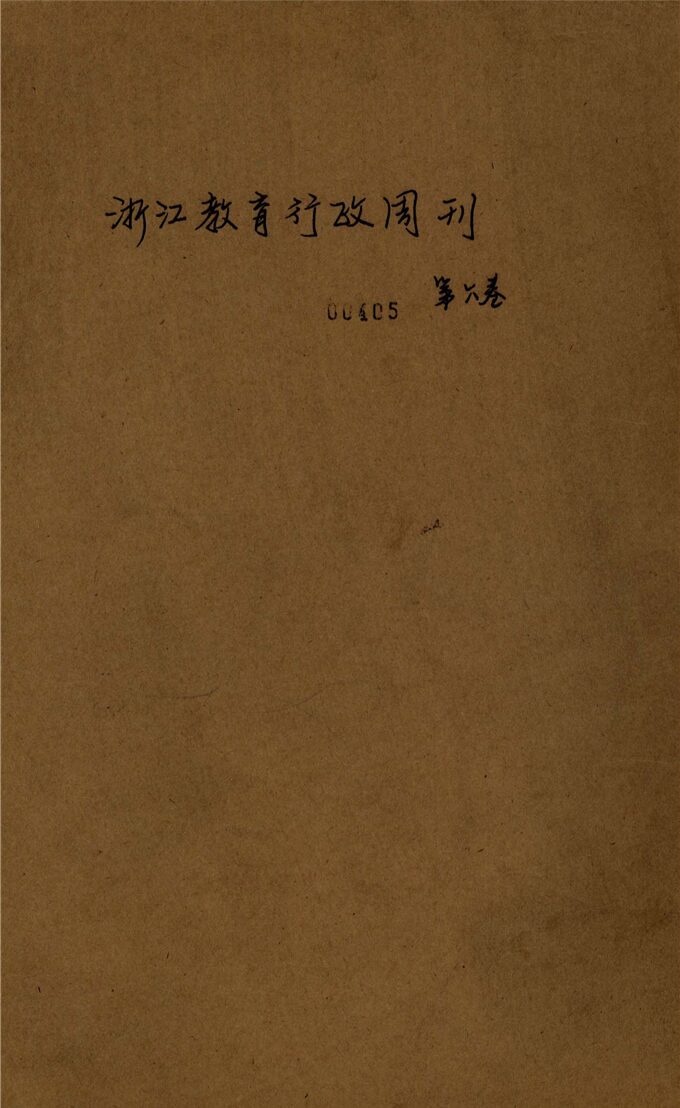 浙江教育行政周刊
第六卷
00405